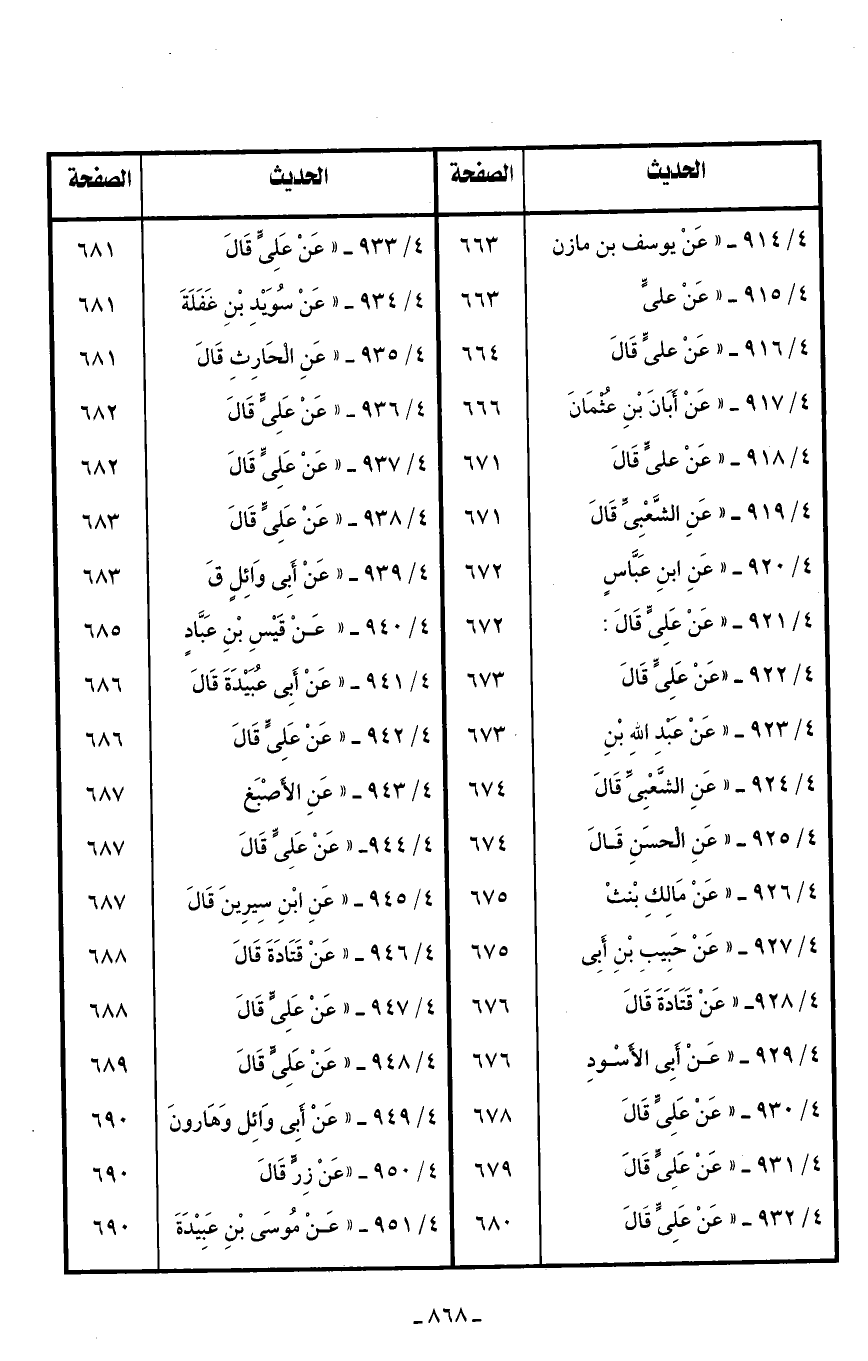 الحديث الصفحة الحديث الصفحة
٤/ ٩١٤ ـ « عَنْ يوسف بن مازن ٦٦٣ ٤/ ٩٣٣ ـ « عَنْ عَلِىٍّ قَالَ ٦٨١
٤/ ٩١٥ ـ « عَنْ علىٍّ ٦٦٣ ٤/ ٩٣٤ ـ « عَنْ سُوَيْدِ بْنِ غَفَلَةَ ٦٨١
٤/ ٩١٦ ـ « عَنْ علىٍّ قَالَ ٦٦٤ ٤/ ٩٣٥ ـ « عَنِ الْحَارِثِ قَالَ ٦٨١
٤/ ٩١٧ ـ « عَنْ أَبَانَ بْنِ عُثْمَانَ ٦٦٦ ٤/ ٩٣٦ ـ « عَنْ عَلِىٍّ قَالَ ٦٨٢
٤/ ٩١٨ ـ « عَنْ علىٍّ قَالَ ٦٧١ ٤/ ٩٣٧ ـ « عَنْ عَلِىٍّ قَالَ ٦٨٢
٤/ ٩١٩ ـ « عَنِ الشَّعْبِىِّ قَالَ ٦٧١ ٤/ ٩٣٨ ـ « عَنْ عَلِىٍّ قَالَ ٦٨٣
٤/ ٩٢٠ ـ « عَنِ ابنِ عَبَّاسٍ ٦٧٢ ٤/ ٩٣٩ ـ « عَنْ أَبِى وَائِلٍ قَ ٦٨٣
٤/ ٩٢١ ـ « عَنْ عَلِىٍّ قَالَ : ٦٧٢ ٤/ ٩٤٠ ـ « عَـنْ قَيْسِ بْنِ عَبَّادٍ ٦٨٥
٤/ ٩٢٢ ـ «عَنْ عَلِىٍّ قَالَ ٦٧٣ ٤/ ٩٤١ ـ « عَنْ أَبِى عُبَيْدَةَ قَالَ ٦٨٦
٤/ ٩٢٣ ـ « عَنْ عَبْدِ اللهِ بْنِ ٦٧٣ ٤/ ٩٤٢ ـ « عَنْ عَلِىٍّ قَالَ ٦٨٦
٤/ ٩٢٤ ـ « عَنِ الشَّعْبِىِّ قَالَ ٦٧٤ ٤/ ٩٤٣ ـ « عَنِ الأَصْبَغِ ٦٨٧
٤/ ٩٢٥ ـ « عَنِ الْحسَنِ قَـالَ ٦٧٤ ٤/ ٩٤٤ـ « عَنْ عَلِىٍّ قَالَ ٦٨٧
٤/ ٩٢٦ ـ « عَنْ مَالِكِ بْنث ٦٧٥ ٤/ ٩٤٥ ـ « عَنِ ابْنِ سِيرِينَ قَالَ ٦٨٧
٤/ ٩٢٧ ـ « عَنْ حَبِيبِ بْنِ أَبِى ٦٧٥ ٤/ ٩٤٦ ـ « عَنْ قَتَادَةَ قَالَ ٦٨٨
٤/ ٩٢٨ـ « عَنْ قَتَادَةَ قَالَ ٦٧٦ ٤/ ٩٤٧ ـ « عَنْ عَلِىٍّ قَالَ ٦٨٨
٤/ ٩٢٩ ـ « عَـنْ أَبِى الأَسْـودِ ٦٧٦ ٤/ ٩٤٨ ـ « عَنْ عَلِىٍّ قَالَ ٦٨٩
٤/ ٩٣٠ ـ « عَنْ عَلِىٍّ قَالَ ٦٧٨ ٤/ ٩٤٩ ـ « عَنْ أَبِى وَائِل وَهَارونَ ٦٩٠
٤/ ٩٣١ ـ « عَنْ عَلِىٍّ قَالَ ٦٧٩ ٤/ ٩٥٠ ـ «عَنْ زِرٍّ قَالَ ٦٩٠
٤/ ٩٣٢ ـ « عَنْ عَلِىٍّ قَالَ ٦٨٠ ٤/ ٩٥١ ـ « عَـنْ مُوسَى بْنِ عَبِيْدَةَ ٦٩٠
ـ ٨٦٨ ـ